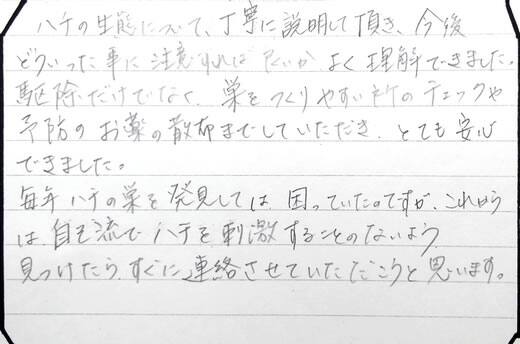 ハチの生態について、丁寧に説明して頂き、今後
どういった事に注意すれば良いかよく理解できました。
駆除だけでなく、巣をつくりやすい所のチェックや
予防のお薬の散布までしていただき、とても安心
できました。
毎年ハチの巣を発見しては困っていたのですが、これから
は自己流でハチを刺激することのないよう
見つけたら、すぐに連絡させていただこうと思います。